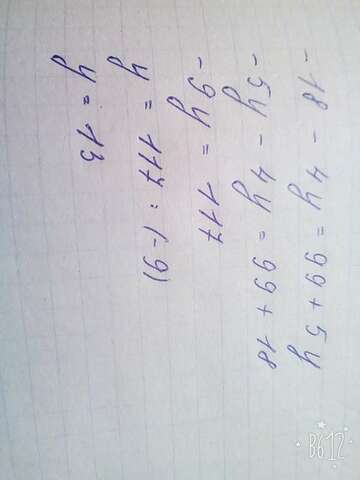 - 18 - 4y = 99 + 5y
- 5y - 4y = 99 + 18
- 9y = 117
y = 117 : (-9)
y = 13
B612